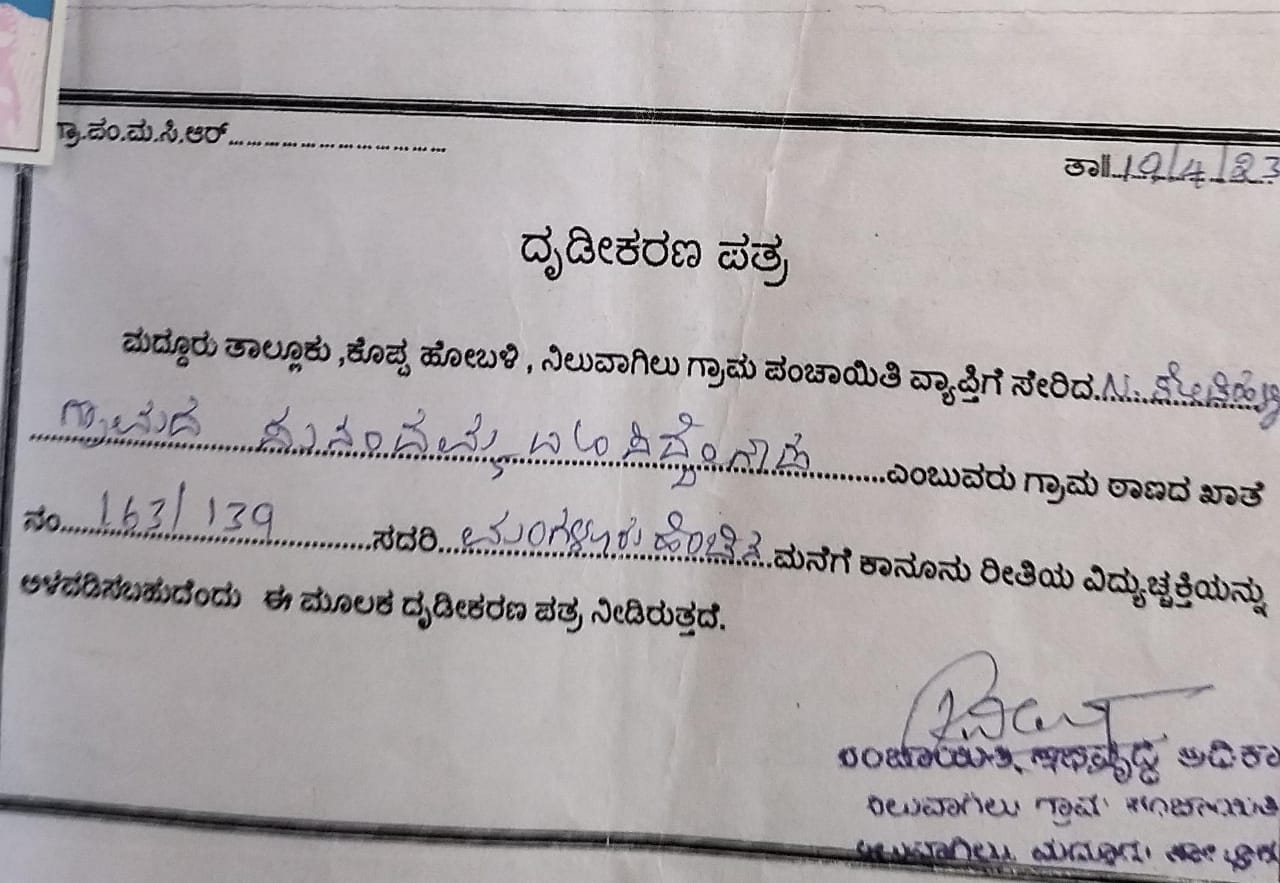 ಗ್ರಾ.ಪಂ.ಮ.ಸಿ.ಆರ್...........................
ತಾ||19/4/23
ದೃಡೀಕರಣ ಪತ್ರ
ಮದ್ದೂರು ತಾಲ್ಲೂಕು ,ಕೊಪ್ಪ ಹೋಬಳಿ , ನಿಲುವಾಗಿಲು ಗ್ರಾಮ ಪಂಚಾಯಿತಿ ವ್ಯಾಪ್ತಿಗೆ ಸೇರಿದ. N.
ಗ್ರಾಮದ ಸುನಂದಮ್ಮ ಎಂಬುವರು ಗ್ರಾಮ ಠಾಣದ ಖಾತೆ
ನಂ. 163/139 ಸದರಿ. ಮಂಗಳೂರು ಹೆಂಚಿನ ಮನೆಗೆ ಕಾನೂನು ರೀತಿಯ ವಿದ್ಯುಚ್ಚಕ್ತಿಯನ್ನು
ಅಳವಡಿಸಬಹುದೆಂದು ಈ ಮೂಲಕ ದೃಡೀಕರಣ ಪತ್ರ ನೀಡಿರುತ್ತದೆ.
ಪಂಚಾಯಿತಿ ಅಭಿವೃದ್ಧಿ ಅಧಿಕಾ
ನಿಲುವಾಗಿಲು ಗ್ರಾಮ ಪಂಚಾಯಿತಿ
ನಿಲುವಾಗಿಲು, ಮದ್ದೂರು